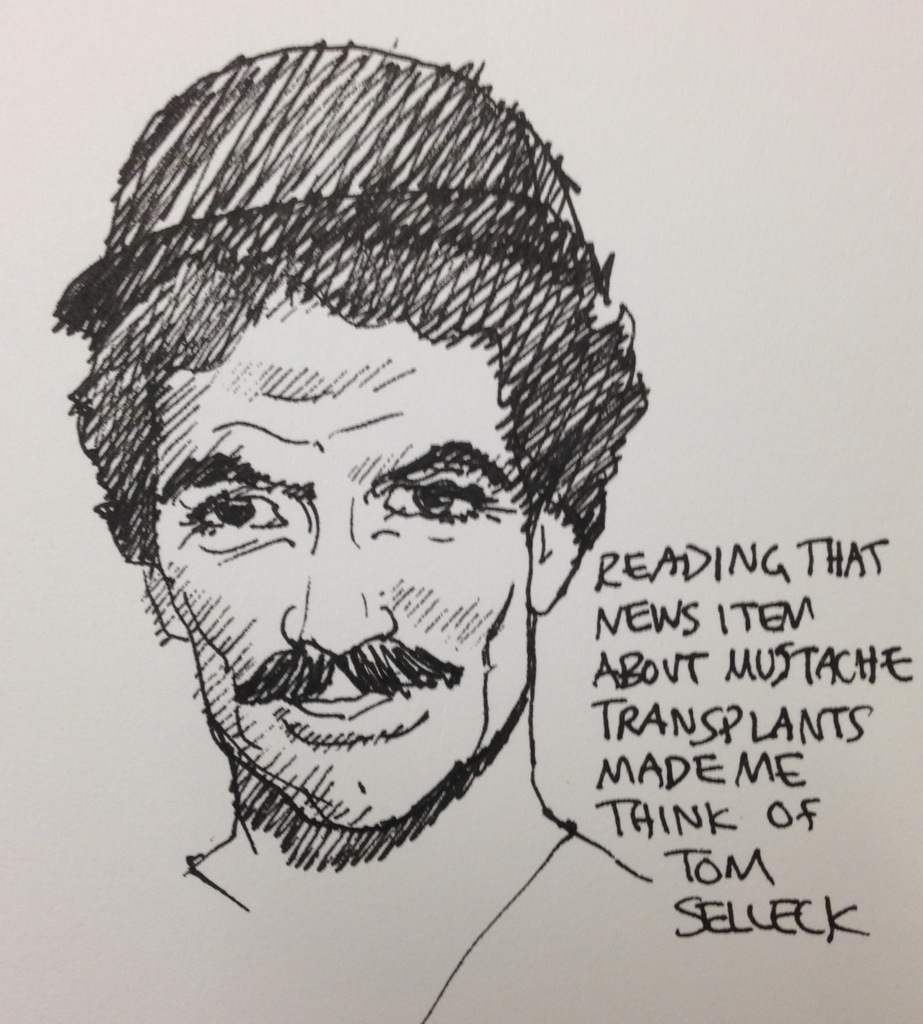 READING THAT
NEWS ITEM
ABOUT MUSTACHE
TRANSPLANTS
MADE ME
THINK OF
TOM
SELLECK